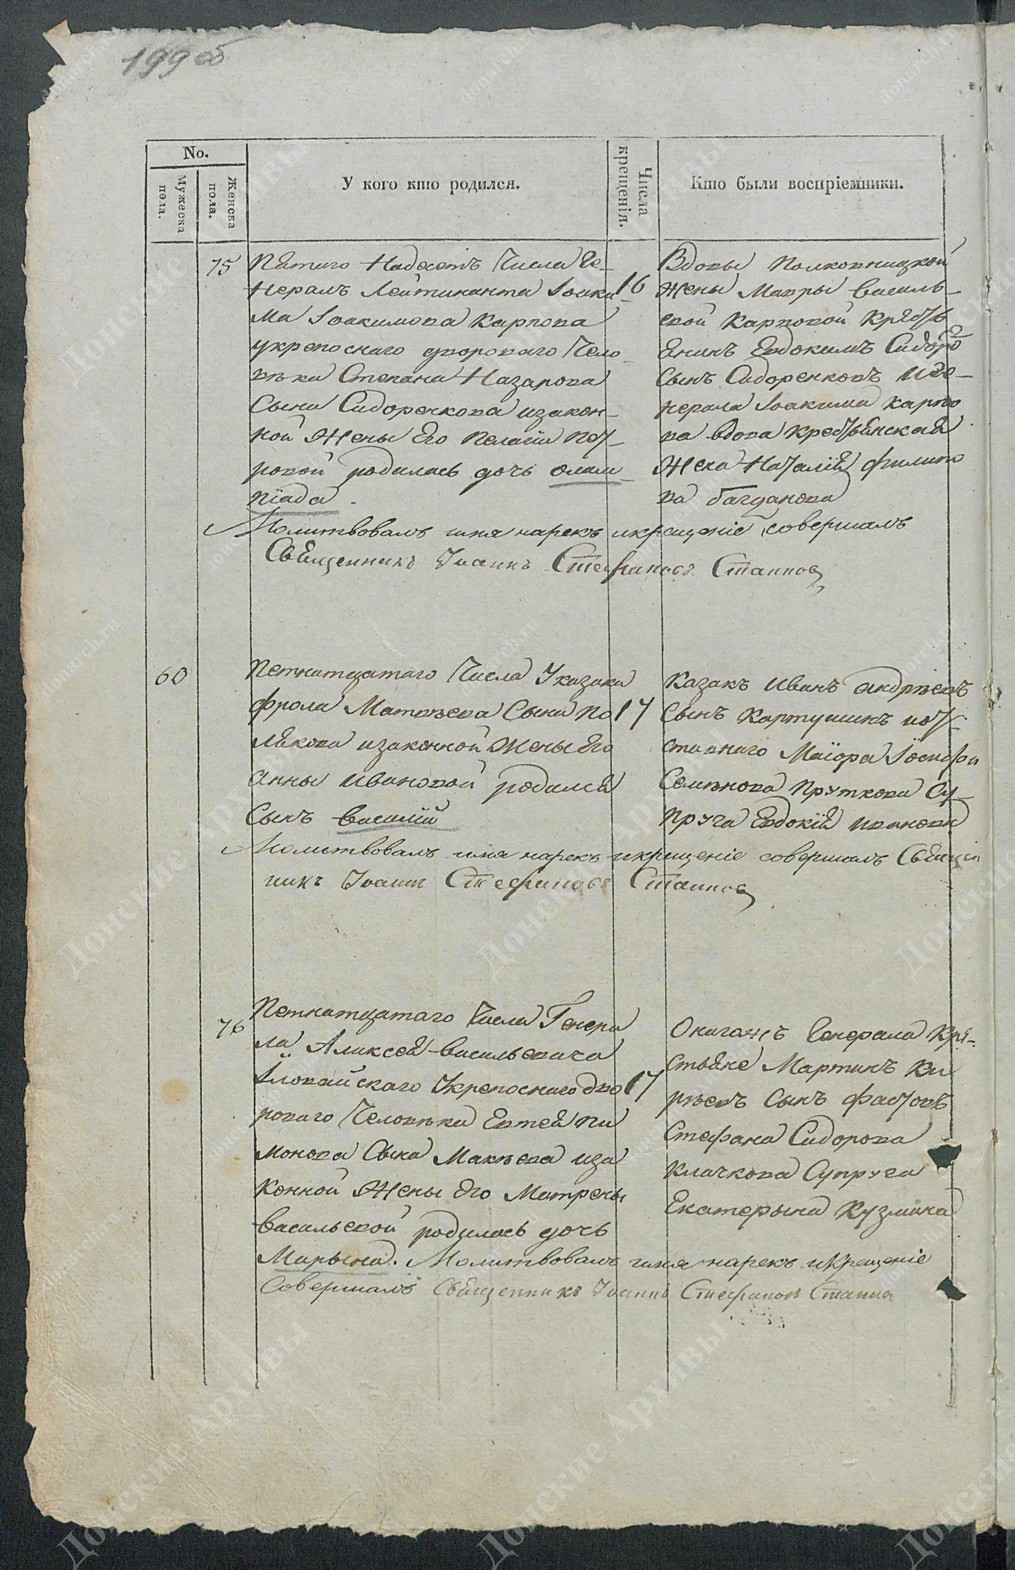 199 об
No.
Мужеска пола.
Женска пола.
У кого кто родился.
Числа крещенія.
Кто были воспріемники.
75
Пятаго Надесеть Числа Ге-
нералъ Лейтинанта Іоаки
ма Іоакимова Карпова
укрепоснаго двороваго Чело
века Степана Назарова
Сына Сидоренкова изакон-
ной Жены Его Пелагіи Пет-
ровой родилась дочь Олим
піада
16
Вдовы Полковницкой
Жены Мавры Василь-
евой Карповой Крестья
Енинъ Евдокимъ Сидоро
Сынъ Сидоренковъ и Ге-
нерала Іоакима Карпо
ва вдова Крестьянская
Жена Наталія Филипо
ва Багданова
Молитвовалъ имя нарекъ икрещеніе совершалъ
Священникъ Іоаннъ Стефановъ
60
Петнатцатаго Числа Указака
Фрола Матвеева Сына По
лякова изаконной Жены Его
Анны Ивановой родился
Сынъ Василій
17
Казакъ Иванъ Андреевъ
Сынъ Картушинъ иот
ставнаго Маіора Іосифа
Семенова Пруткова Су-
пруга Евдокія Иванова
Молитвовалъ имя нарекъ икрещеніе совершалъ Священ
никъ Іоаннъ Стефановъ
76
Петнатцатаго Числа Генера
ла Аликсея Васильевича
Іловайскаго Укрепоснаго дво
роваго Человека Евтея Пи
монова Сына Макеева иза
конной Жены Его Матрены
Васильевой родилась дочь
Марына. Молитвовалъ имя нарекъ икрещеніе
совершалъ Священникъ Іоаннъ Стефановъ
17
Онагожъ Генерала Кре-
стьяне Мартинъ Ки
реевъ Сынъ
Стефана Сидорова
Клачкова Супруга
Екатерына Кузмина
Донские Архивы
donarch.ru